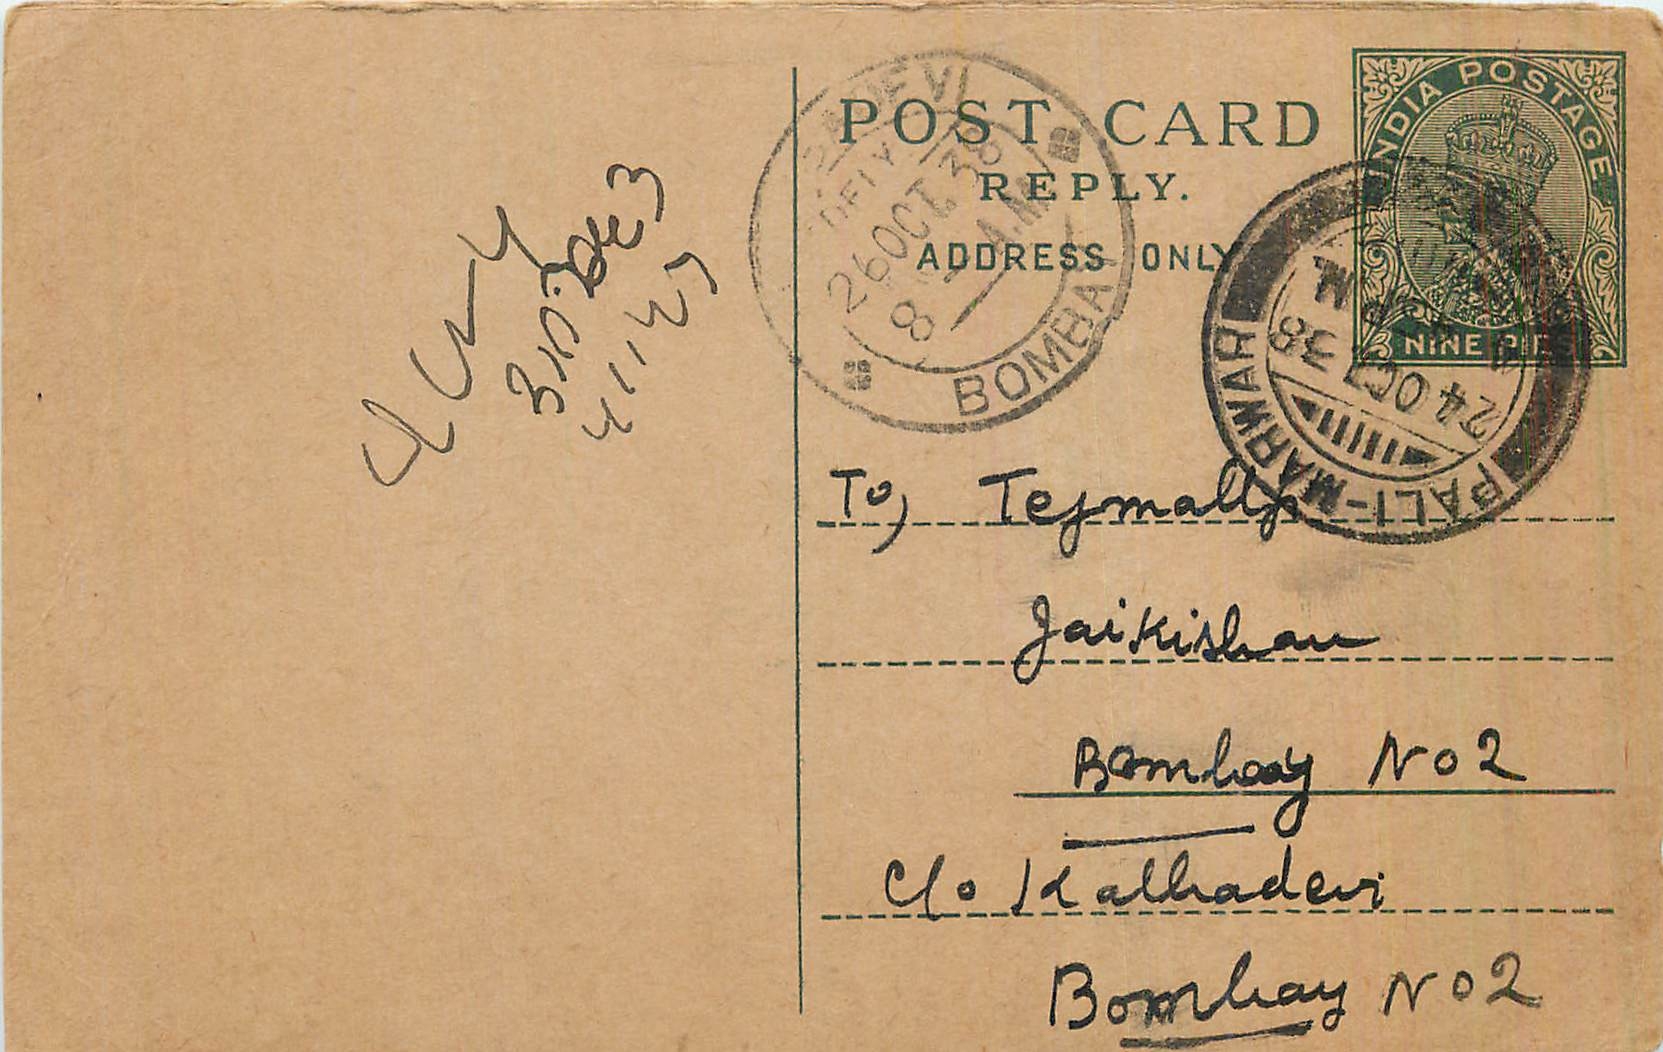 POST CARD
REPLY.
ADDRESS ONLY
INDIA POSTAGE
NINE PIE
BOMBAY
26 OCT. 38
8 A.M.
PALI-MARWAR
24 OCT 38
To, Tejmalji
Jaikishan
Bombay No 2
C/o Kalbadevi
Bombay No 2